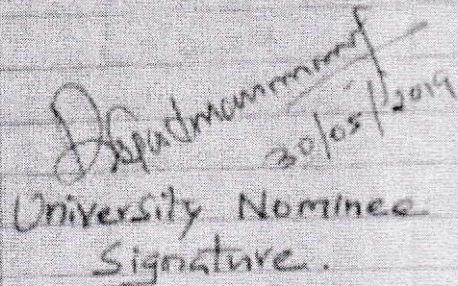 30/05/2019
University Nominee
Signature.